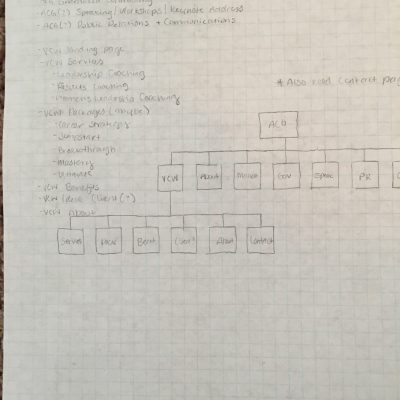 - ACG(?) Speaking/Workshops/Keynote Address
- ACG(?) Public Relations + Communications
- VCW Landing page
- VCW Services
- Leadership Coaching
- Coaching
- Women's Leadership Coaching
- VCW Packages (maybe)
- Career Strategy
- Jumpstart
- Breakthrough
- Mastery
- Ultimate
- VCW Benefits
- VCW Ideal Client (?)
- VCW About
* Also need content
ACG
VCW About Gov Speak PR
Serves Packs Benef. Client? About Contact